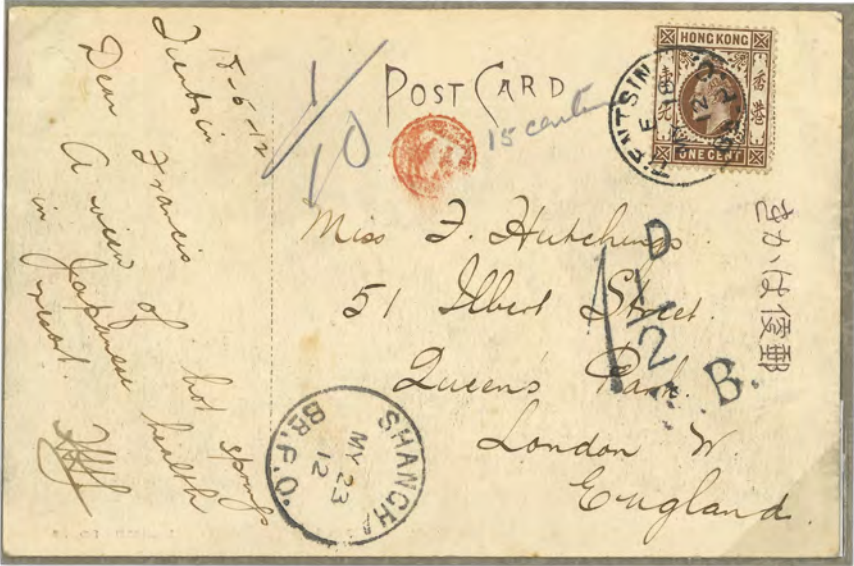 Tientsin
18-5-12
Dear Francis
A view of hot springs
in Japanese health
resort.
1/10
POST CARD
15 centimes
HONG KONG
香港
壹
ONE CENT
TIENTSIN
Miss F. Hutchings.
51 Ilbert Street.
Queen's Park.
London W.
England.
D
1/2
B.
きかは便郵
SHANGHA
BR.P.O.
MY 23
12